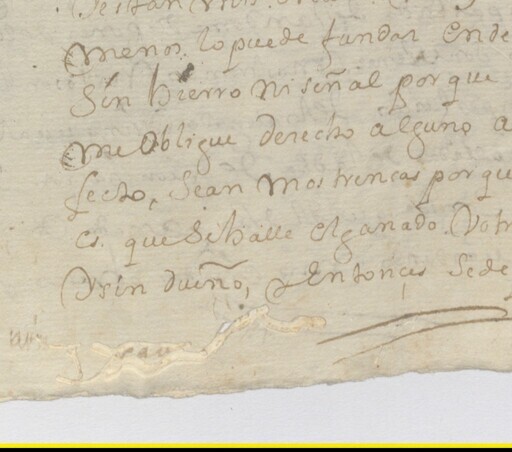 menos. lo puede fundar en de
sin hierro ni señal porque
me obligue derecho alguño a
fecto, sean mostrencas porqu
es. que se halle el ganado.
y sin dueño, entonçes se de